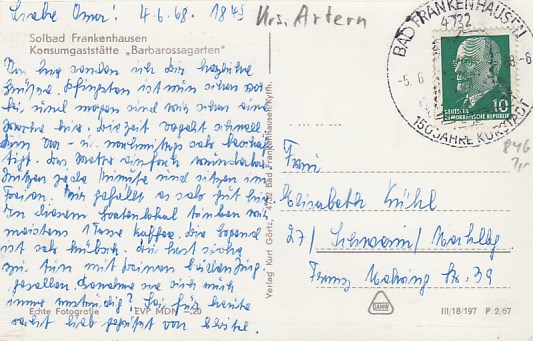 Liebe Oma! 4.6.68. 1845
Krs. Artern
Solbad Frankenhausen
Konsumgaststätte „Barbarossagarten"
Von hier senden ich dir herzliche
Grüße. Pfingsten ist nun schon vor-
bei, und morgen sind wir schon eine
Woche hier. Die Zeit vergeht schnell.
Bin vor- u. nachmittags sehr beschäf-
tigt. Das Wetter einfach wunderbar
jede Minute und sitzen im
Freien. Mir gefällt es sehr gut hier.
In diesem Gartenlokal trinken wir
meistens Tasse Kaffee. Die Gegend
ist sehr hübsch. Du hast sicher
zu tun mit deinen beiden Jung-
gesellen.
immer anständig? Sei für heute
recht lieb gegrüßt von
Echte Fotografie EVP MDN -,20
Verlag Kurt Görtz, 4732 Bad Frankenhausen/Kyffh.
BAD FRANKENHAUSEN
4732
-5.6.
8-6
150 JAHRE KURSTADT
DEUTSCHE
DEMOKRATISCHE REPUBLIK
10
846
1,-
Frau
Elisabeth Kühl
27/ Schwerin/Mecklbg.
Franz Mehring Str. 39
DAMW
III/18/197 P 2/67